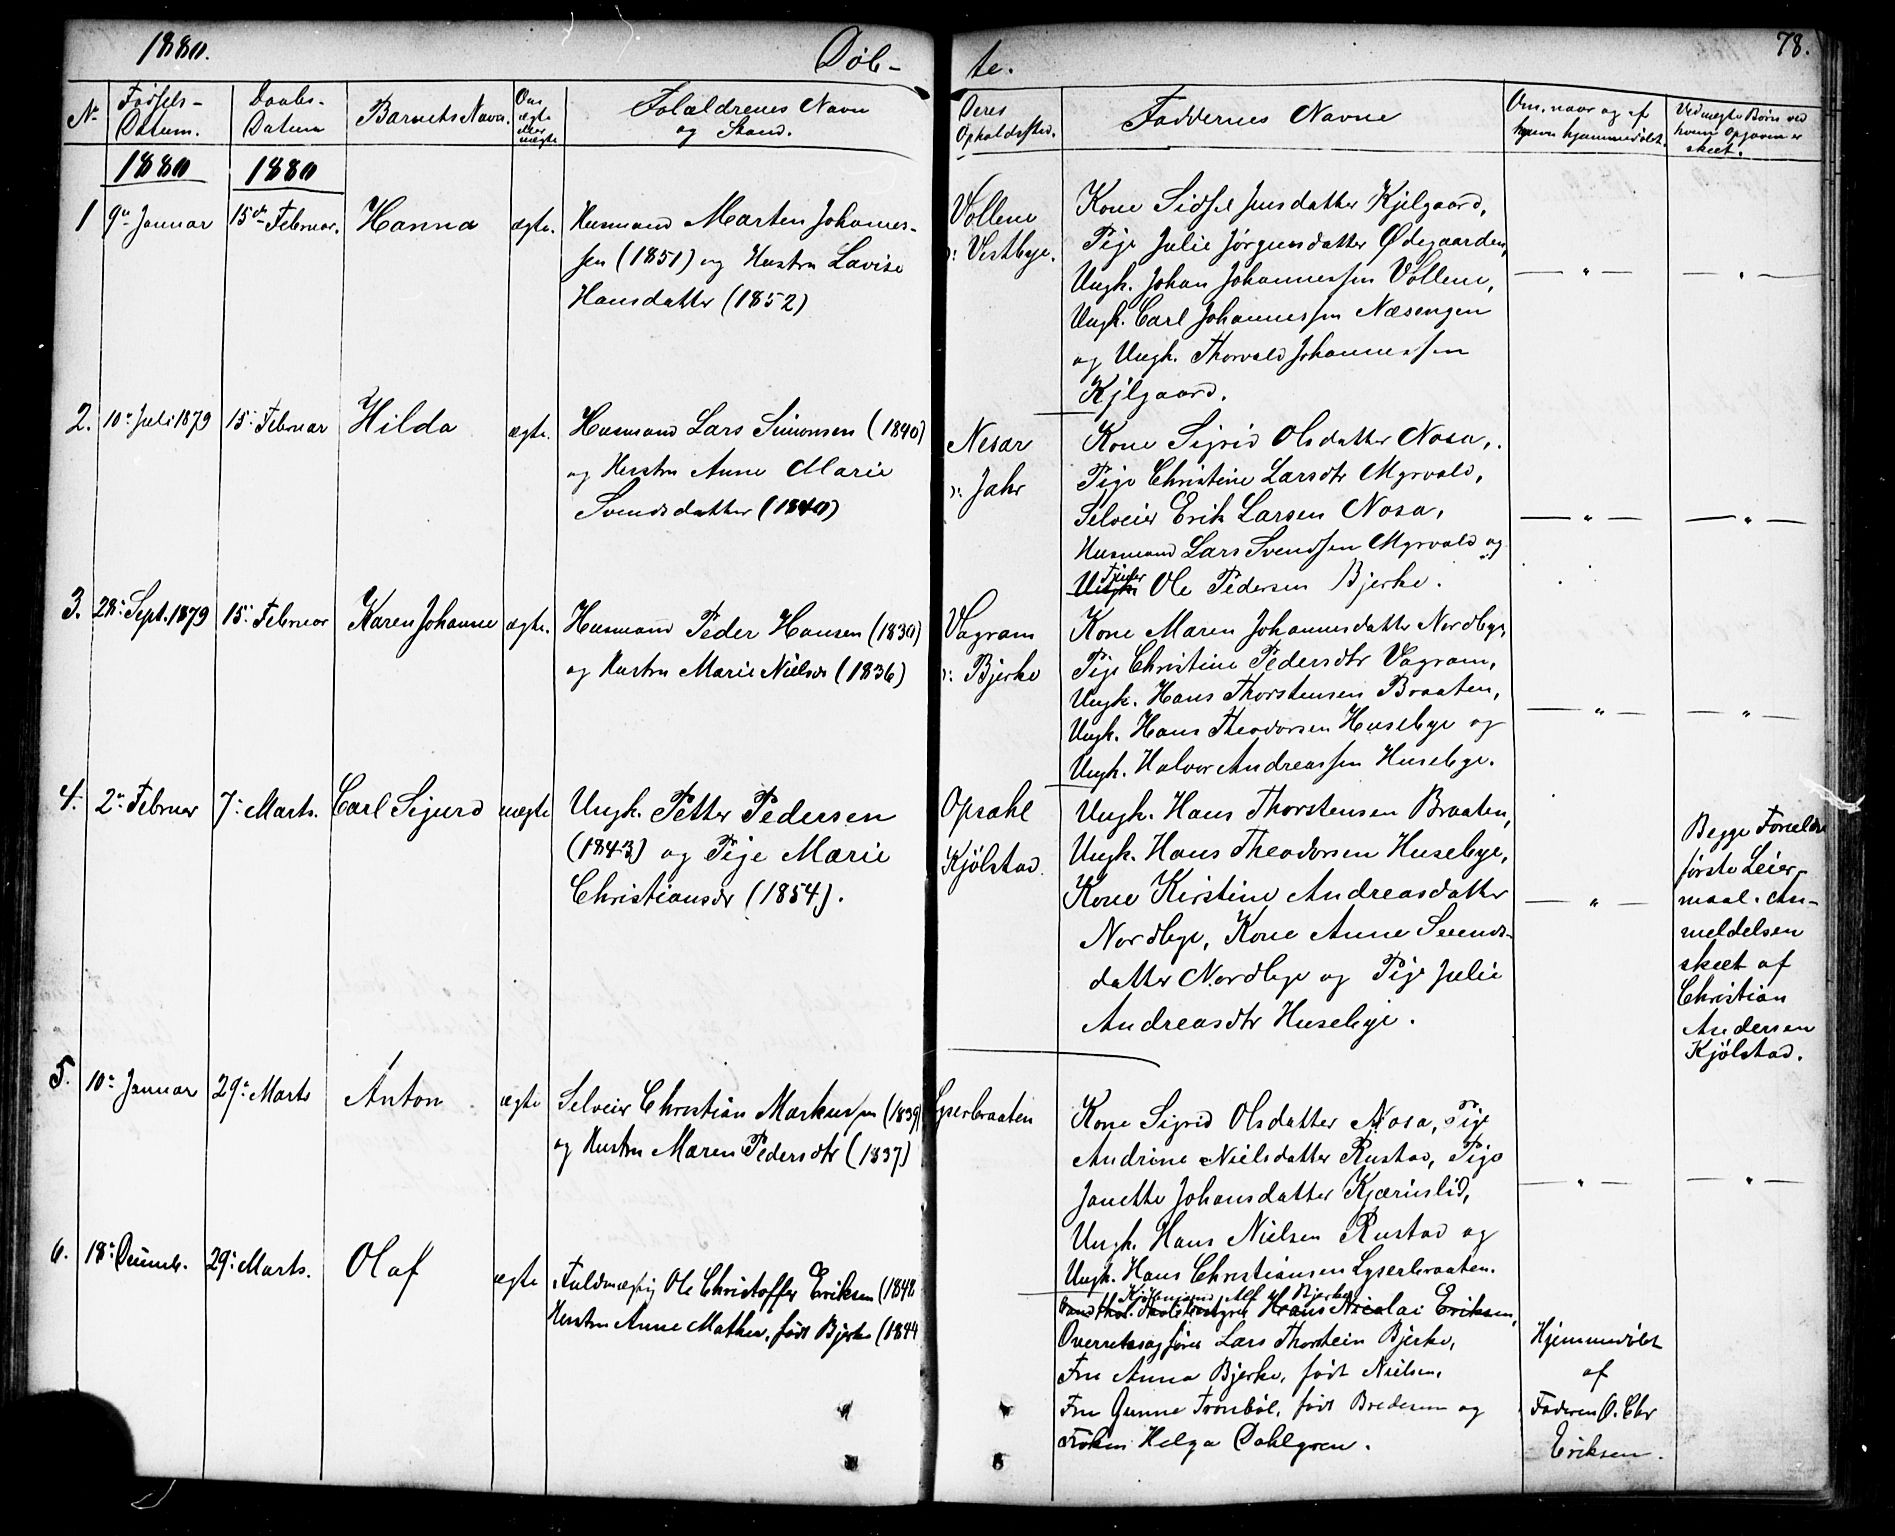 1880.
Døb-
te.
78.
No
Fødsels-
Datum.
Daabs-
Datum
Barnets Navn.
Om
ægte
eller
uægte
Forældrenes Navn
og Stand.
Deres
Opholdssted.
Faddernes Navne
Om, naar og af
hvem hjemmedøbt.
Ved uægte Børn ved
hvem Opgaven er
skeet.
1880
1880
1
9de Januar
15de Februar.
Hanna
ægte.
Husmand Marten Johannes-
sen (1851) og Hustru Lovise
Hansdatter (1852)
Vollene
v: Vestbye.
Kone Sidsel Jensdatter Kjilgaard,
Pige Julie Jørgensdatter Ødegaarden,
Ungk. Johan Johannessen Vollene,
Ungk. Carl Johannessen Næsengen
og Ungk. Thorvald Johannessen
Kjilgaard.
— " —
— " —
2.
10: Juli 1879
15: Februar
Hilda
ægte.
Husmand Lars Simonsen (1840)
og Hustru Anne Marie
Svendsdatter (1840)
Nesar
v: Jahr
Kone Sigrid Olsdatter Nosa,
Pige Christine Larsdtr Myrvold,
Selveier Erik Larsen Nosa,
Husmand Lars Svendsen Myrvold og
Ungk. Tjener Ole Pedersen Bjerke.
— " —
— " —
3.
28: Sept. 1879
15: Februar
Karen Johanne
ægte.
Husmand Peder Hansen (1830)
og Hustru Marie Nielsdr (1836)
Vagram
v: Bjerke
Kone Maren Johannesdatter Nordbye,
Pige Christine Pedersdtr Vagram,
Ungk. Hans Thorstensen Braaten,
Ungk. Hans Theodorsen Husebye og
Ungk. Halvor Andreassen Husebye.
— " —
— " —
4.
2: Februar
7: Marts.
Carl Sigurd
uægte
Ungk. Petter Pedersen
(1843) og Pige Marie
Christiansdr (1854).
Opsahl
Kjølstad.
Ungk. Hans Thorstensen Braaten,
Ungk. Hans Theodorsen Husebye,
Kone Kirstine Andreasdatter
Nordbye, Kone Anne Svends-
datter Nordbye og Pige Julie
Andreasdtr Husebye.
— " —
Begge Forældre
første Leier-
maal. An-
meldelsen
skeet af
Christian
Andersen
Kjølstad.
5.
10: Januar
29: Marts
Anton
ægte
Selveier Christian Markussen (1839)
og Hustru Maren Pedersdtr (1837)
Lyserbraaten
Kone Sigrid Olsdatter Nosa, Pige
Andrine Nielsdatter Rustad, Pige
Janette Johansdatter Kjærnslid,
Ungk. Hans Nielsen Rustad og
Ungk. Hans Christiansen Lyserbraaten.
— " —
— " —
6.
18: Decemb.
29: Marts.
Olaf
ægte
Fuldmægtig Ole Christoffer Eriksen (1848
Hustru Anne Mathea, født Bjerke (1844
Kjøbmand Alf Bjerke
Hans Nicolai Eriksen,
Overretssagfører Lars Thorstein Bjerke,
Fru Anna Bjerke, født Nielsen,
Fru Gunne Tronbøl, født Bredesen og
Frøken Helga Dahlgren.
Hjemmedøbt
af
Faderen O. Chr
Eriksen.